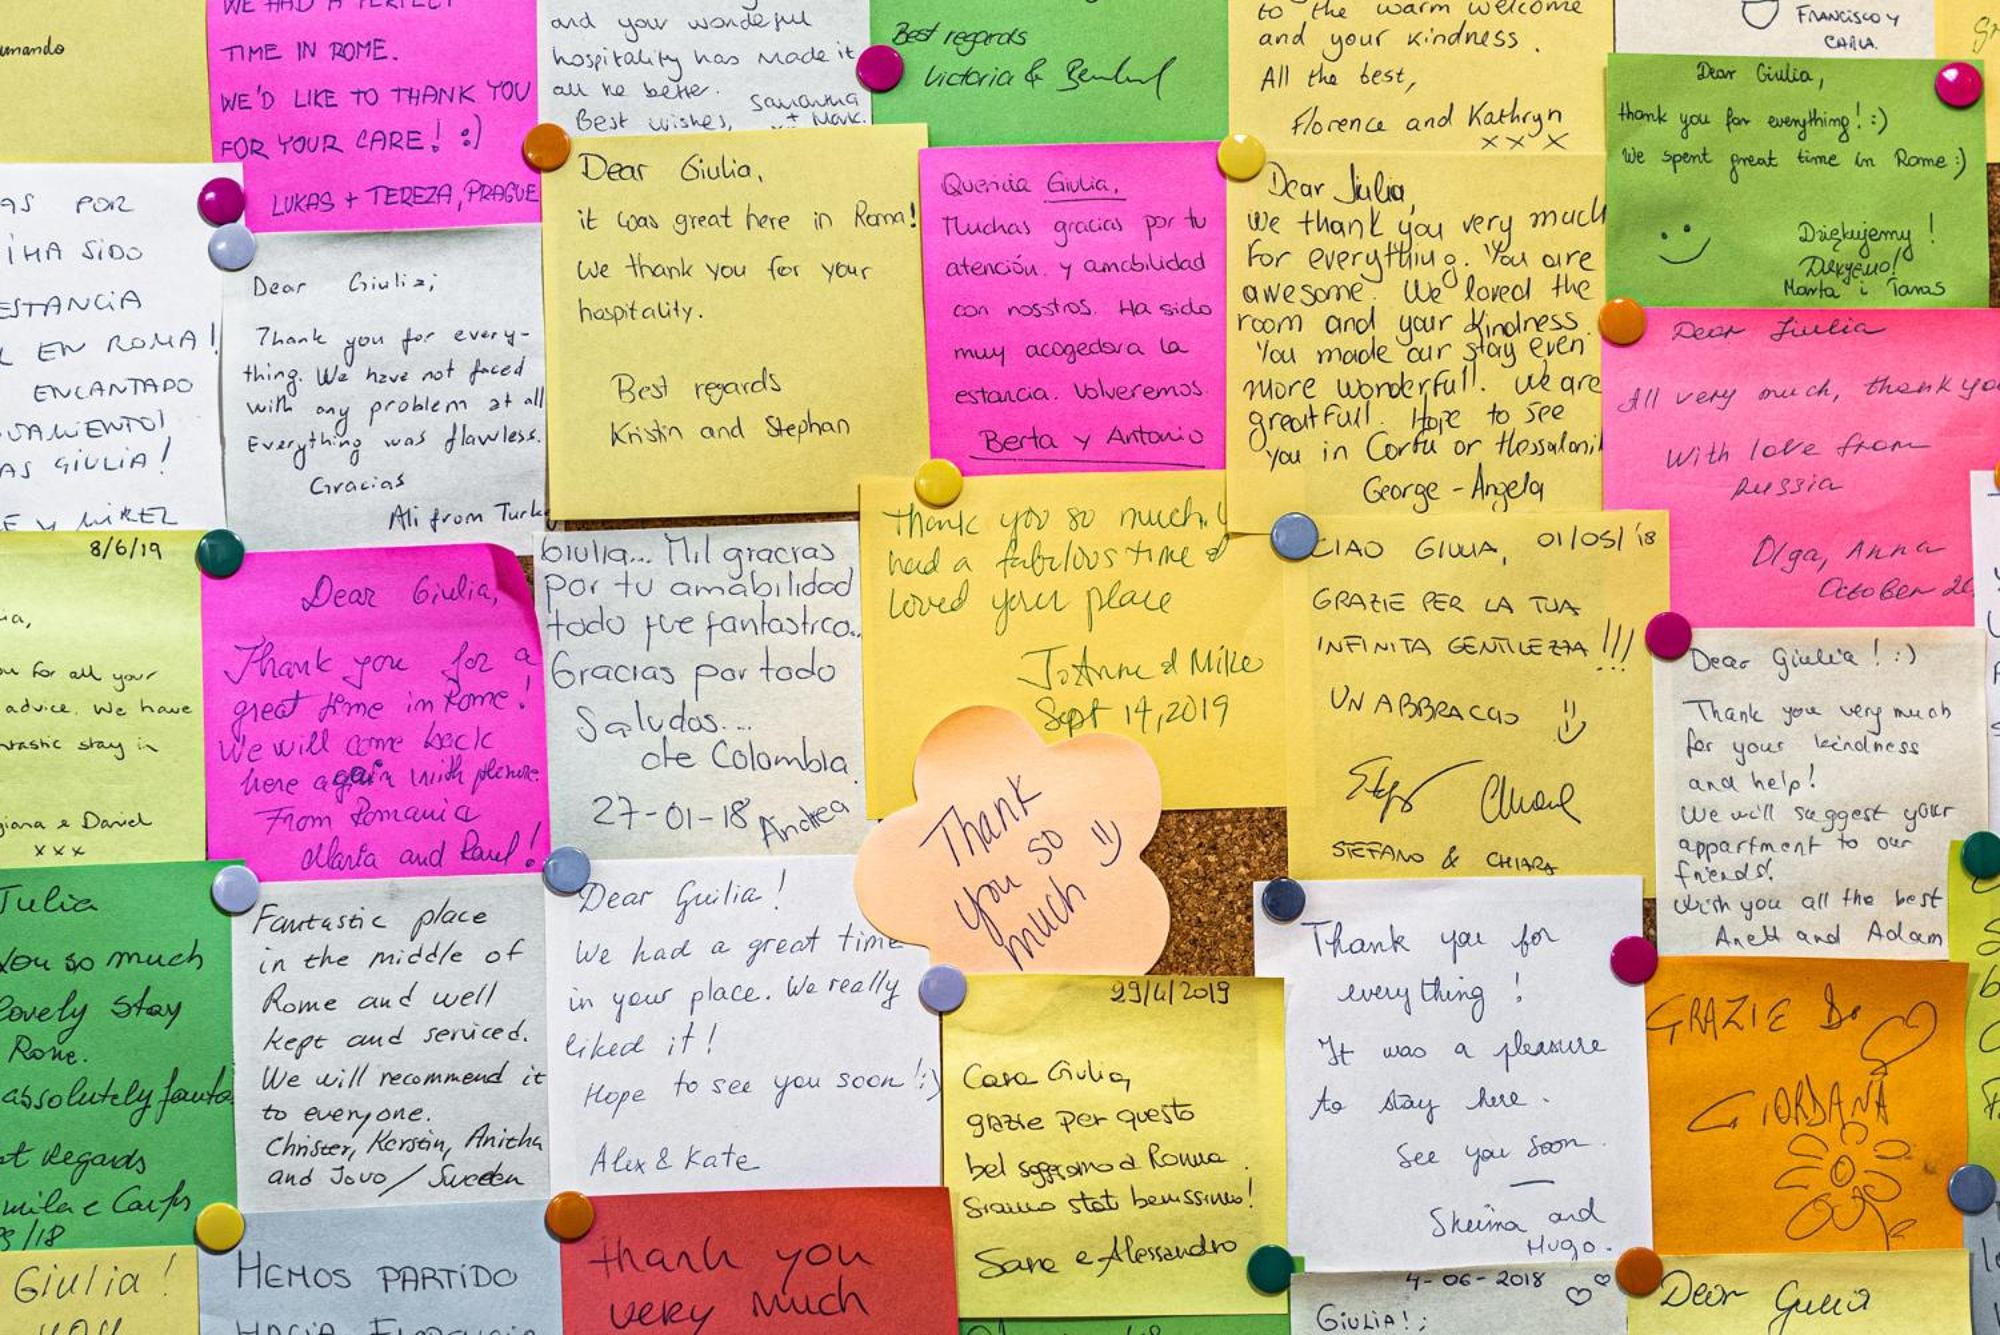 WE HAD A PERFECT
TIME IN ROME.
WE'D LIKE TO THANK YOU
FOR YOUR CARE! :)
LUKAS + TEREZA, PRAGUE
and your wonderful
hospitality has made it
all he better.
Best wishes, Samantha
+ Mark.
Best regards
Victoria &
to the warm welcome
and your kindness.
All the best,
Florence and Kathryn
x x x
FRANCISCO Y
CARLA.
Dear Giulia,
thank you for everything! :)
We spent great time in Rome :)
Dziękujemy!
Marta i Taras
AS POR
HA SIDO
ESTANCIA
EN ROMA!
ENCANTADO
AS GIULIA!
Dear Giulia;
Thank you for every-
thing. We have not faced
with any problem at all
Everything was flawless.
Gracias
Ali from Turke
Dear Giulia,
it was great here in Roma!
We thank you for your
hospitality.
Best regards
Kristin and Stephan
Querida Giulia,
Muchas gracias por tu
atención y amabilidad
con nosotros. Ha sido
muy acogedora la
estancia. Volveremos.
Berta y Antonio
Dear Julia,
we thank you very much
for everything. You are
awesome. We loved the
room and your kindness.
You made our stay even
more wonderfull. we are
greatfull. Hope to see
you in Corfu or thessaloni
George - Angela
Dear Giulia
All very much, thank you
With love from
Russia
Olga, Anna
October 20
8/6/19
for all your
advice. We have
stay in
e Daniel
x x x
Dear Giulia,
Thank you for a
great time in Rome!
We will come back
here again with plesure.
From Romania
Maria and Paul!
Giulia... Mil gracias
por tu amabilidad
todo fue fantastico..
Gracias por todo
Saludos...
de Colombia.
27-01-18 Andrea
Thank you so much!
had a fabulous time &
loved your place
JoAnne & Mike
Sept 14, 2019
CIAO GIULIA, 01/05/'18
GRAZIE PER LA TUA
INFINITA GENTILEZZA!!!
UN ABBRACCIO
STEFANO & CHIARA
Dear Giulia! :)
Thank you very much
for your kindness
and help!
We will suggest your
appartment to our
friends!
Wish you all the best
Anett and Adam
Thank
you so
much
Julia
You so much
lovely stay
Rome.
absolutely fanta
Regards
9/18
Fantastic place
in the middle of
Rome and well
kept and serviced.
We will recommend it
to everyone.
Christer, Kerstin, Anitha
and Jovo / Sweden
Dear Guilia!
We had a great time
in your place. We really
liked it!
Hope to see you soon! :)
Alex & Kate
29/4/2019
Cara Giulia,
grazie per questo
bel soggiorno a Roma.
Siamo stati benissimo!
Sara e Alessandro
Thank you for
everything!
It was a pleasure
to stay here.
See you soon.
Sheima and
Hugo.
GRAZIE DA
GIORDANA
Giulia!
YOU
HEMOS PARTIDO
HACIA
thank you
very much
4-06-2018
GIULIA!;
Dear Giulia